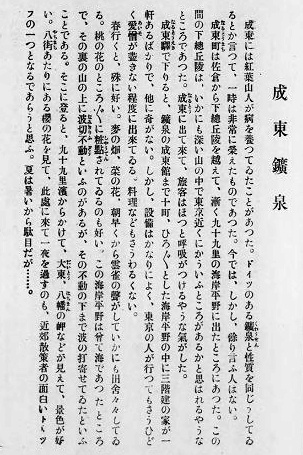 成東鑛泉
成東には紅葉山人が病を養つてゐたことがあつた。ドイツのある鑛泉と性質を同じうしてゐ
るとか言つて、一時は非常に榮えたものであつた。今では、しかし、餘り言ふ人はない。
成東町は佐倉から下總丘陵を越えて、漸く九十九里の海岸平野に出たところにあつた。この
間の下總丘陵は、いかにも深い山の中で東京近くにかういふところがあるかと思はれるやうな
ところであつた。成東に出て來て、旅客はほつと呼吸がつけるやうな氣がした。
成東驛で下りると、鑛泉の成東館まで十町、ひろ〴〵とした海岸平野の中に三階建の家が一
軒あるばかりで、他に奇がない。しかし、設備はかなりによく、東京の人が行つてもさうひど
く愛憎が盡きない程度に出來てゐる。料理などもさうわるくない。
春行くと、殊に好い。麥の畑、菜の花、朝早くから雲雀の聲がしていかにも田舍々々してゐ
る。桃の花のところ〴〵に粧點されてゐるのも好い。この海岸平野は曾て海であつたところ
で、その裏の山の上に波切不動といふのがあるが、その不動の下まで波の打寄せてゐたといふ
ことである。そこに登ると、九十九里濱からかけて、大東、八幡の岬などが見えて、景色が好
い。八街あたりにある櫻の花を見て、此處に來て一夜を過すのも、近郊散策者の面白いトリツ
プの一つとなるであらうと思ふ。夏は暑いから駄目だが……。